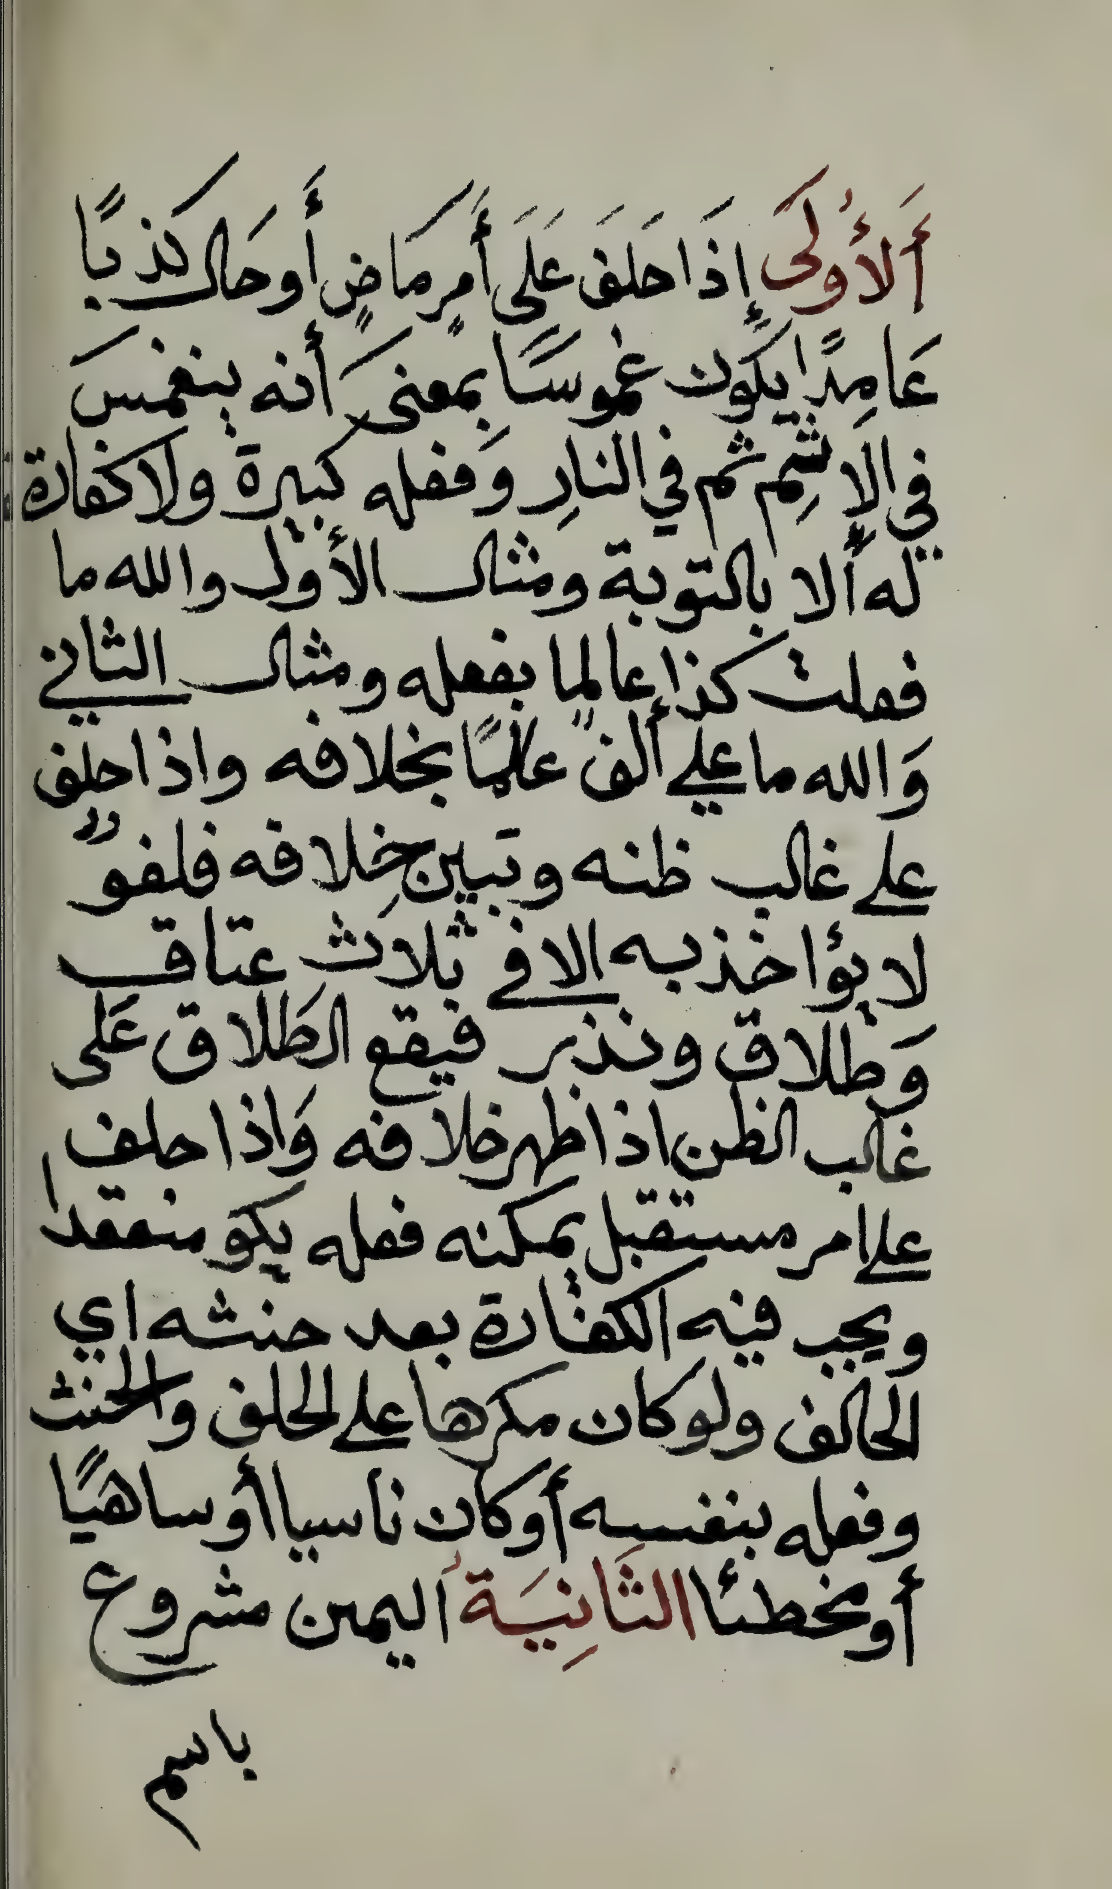 أَلأُولَى إِذَا حَلَفَ عَلَى أَمرٍ مَاضٍ أَو حَال كذبًا
عَامِدًا يكَون غموسًا بمعنى أنه ينغمسَ
في الإِثمِ ثم في النارِ وَفعله كبيرة ولا كفارة
له ألا بالتوبة ومثال الأول والله ما
فعلت كذا عالما بفعله ومثال الثاني
وَالله ما علي ألفٌ عالمًا بخلافه واذا حلف
على غالب ظنه وتبين خِلافه فلغوٌ
لا يؤاخذ به الا في ثلاث عتاق
وَطلاق ونذر فيقع الطَلاق عَلى
غالب الظن اذا ظهر خلافه وَاذا حلف
على امر مستقبل يمكنه فعله يكو منعقدا
ويجب فيه الكفارة بعد حنثه اي
الحالف ولو كان مكرها على الحلف والحنث
وفعله بنفسه أو كان ناسيا أو ساهيًا
أو مخطئا الثَانِيَة اُليمين مشروع
باسم